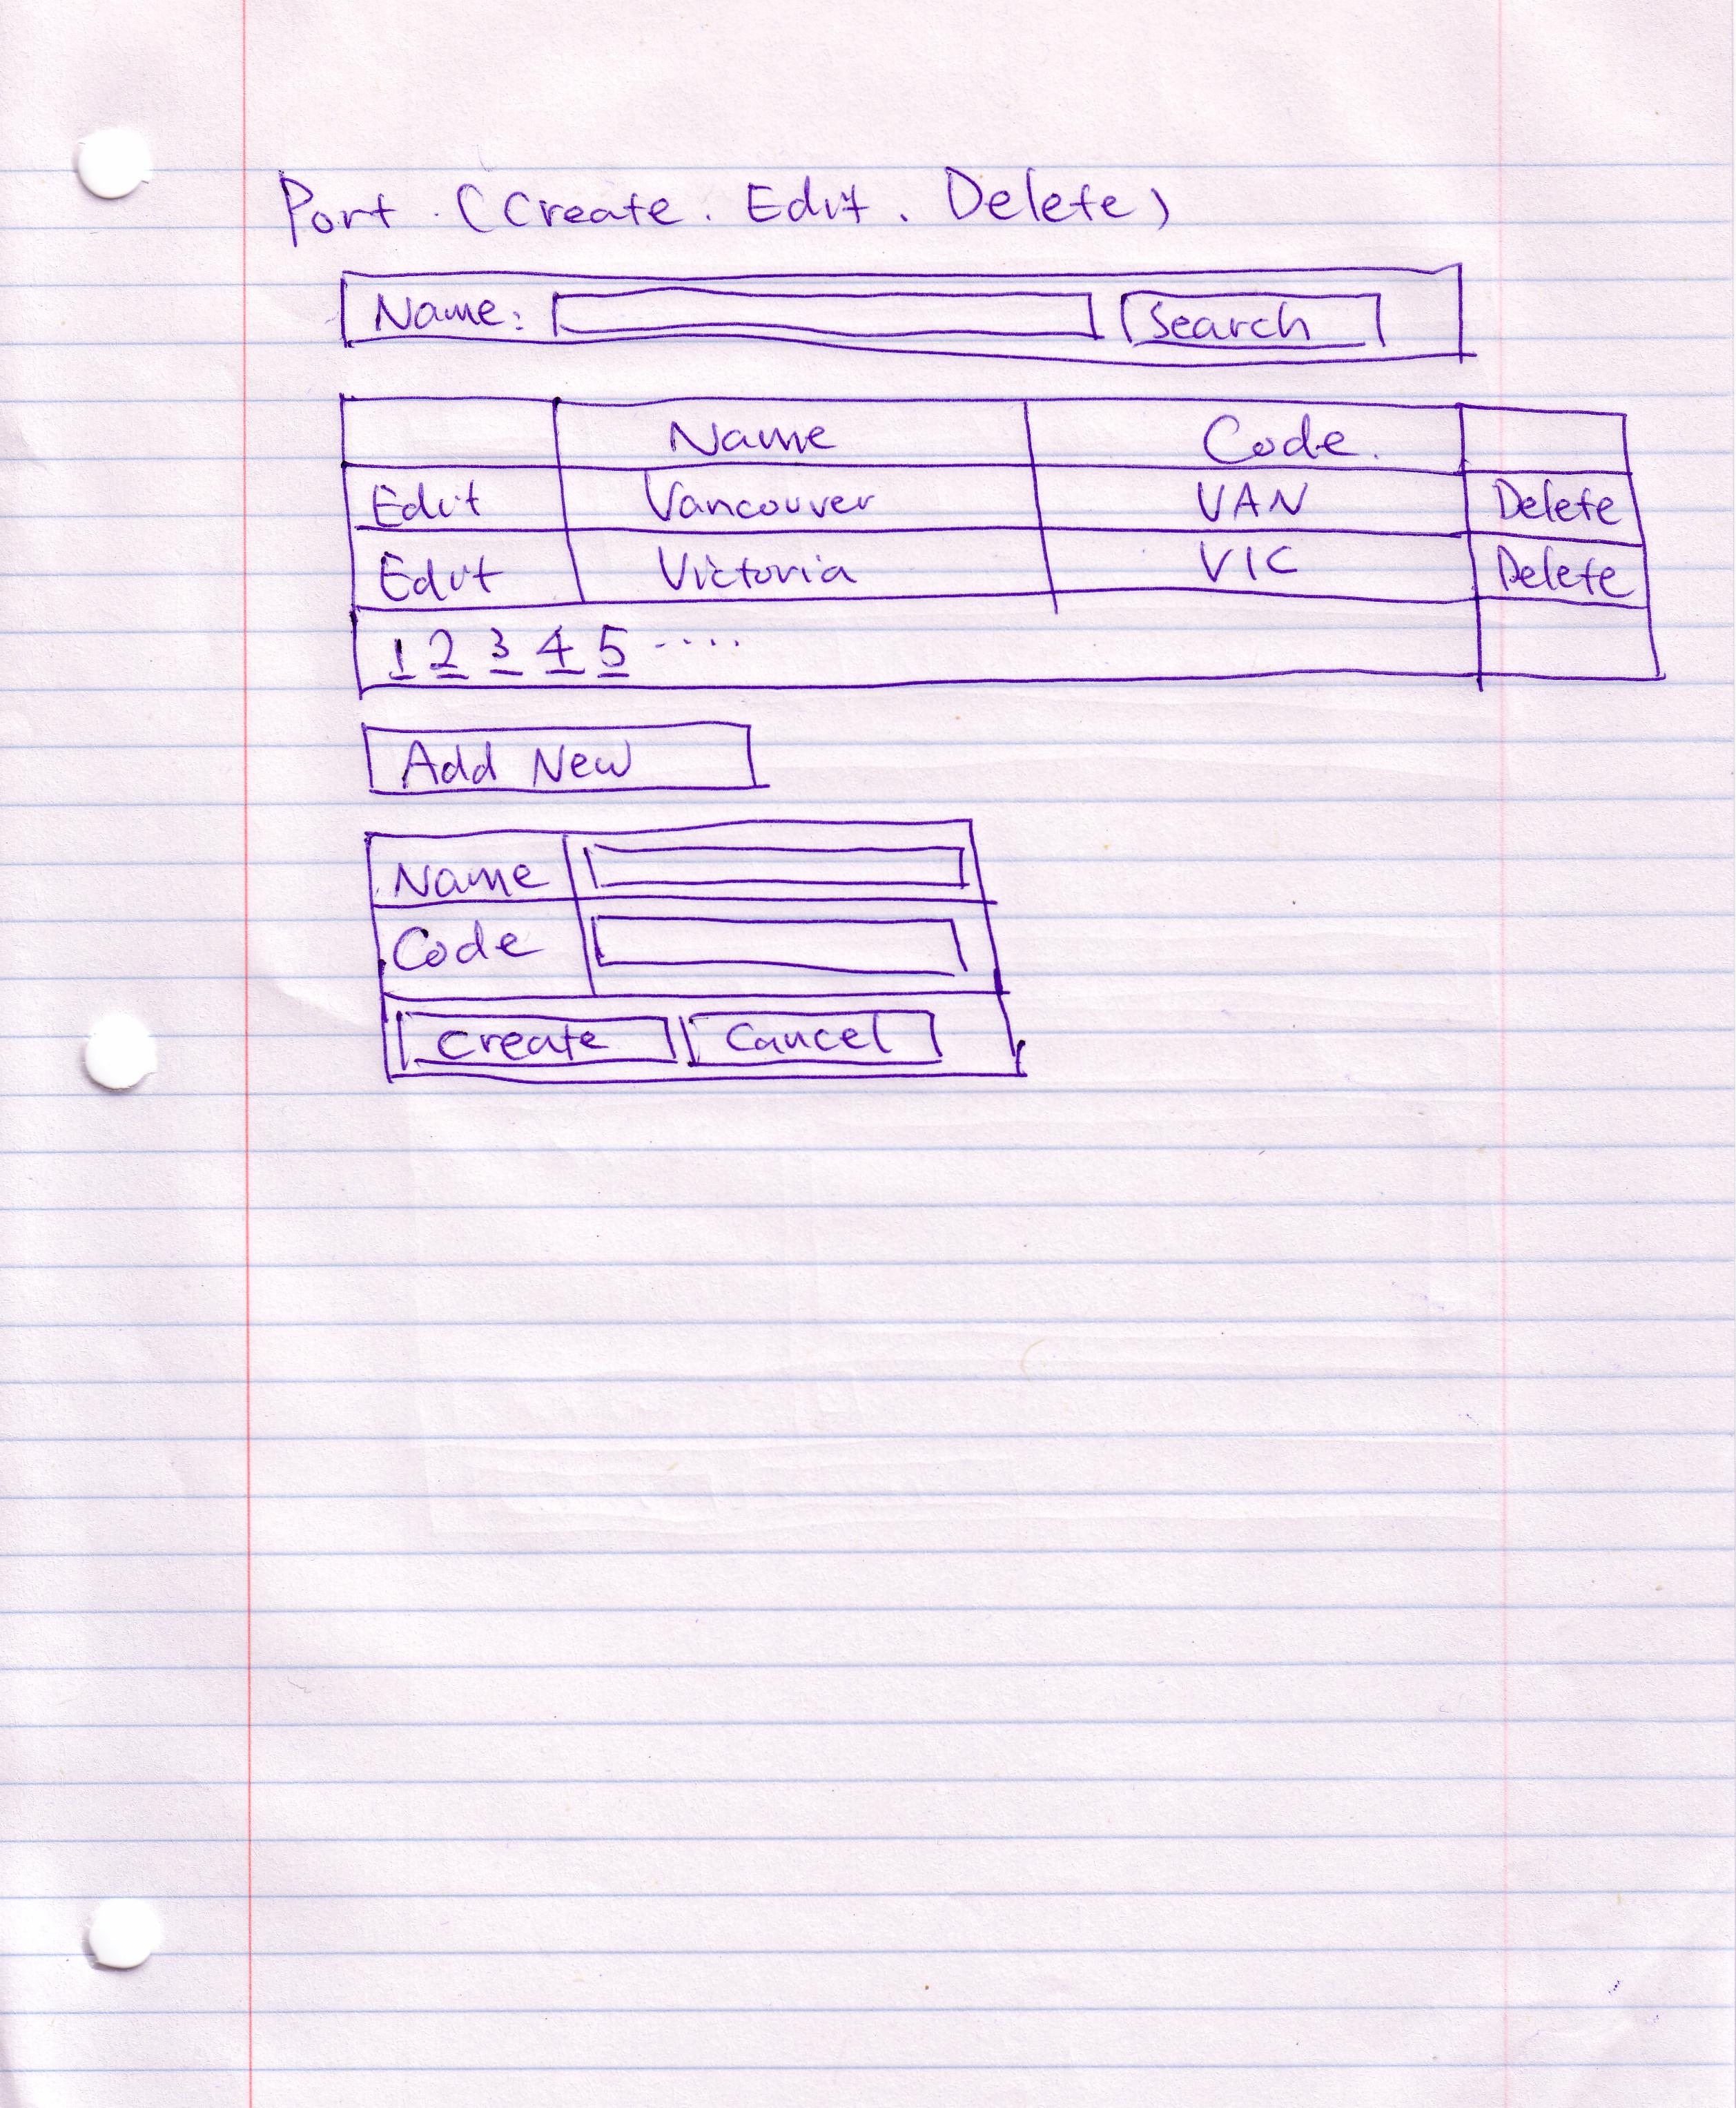 Port. (Create. Edit. Delete)
Name: Search
Name Code.
Edit Vancouver VAN Delete
Edit Victoria VIC Delete
1 2 3 4 5 ....
Add New
Name
Code
Create Cancel